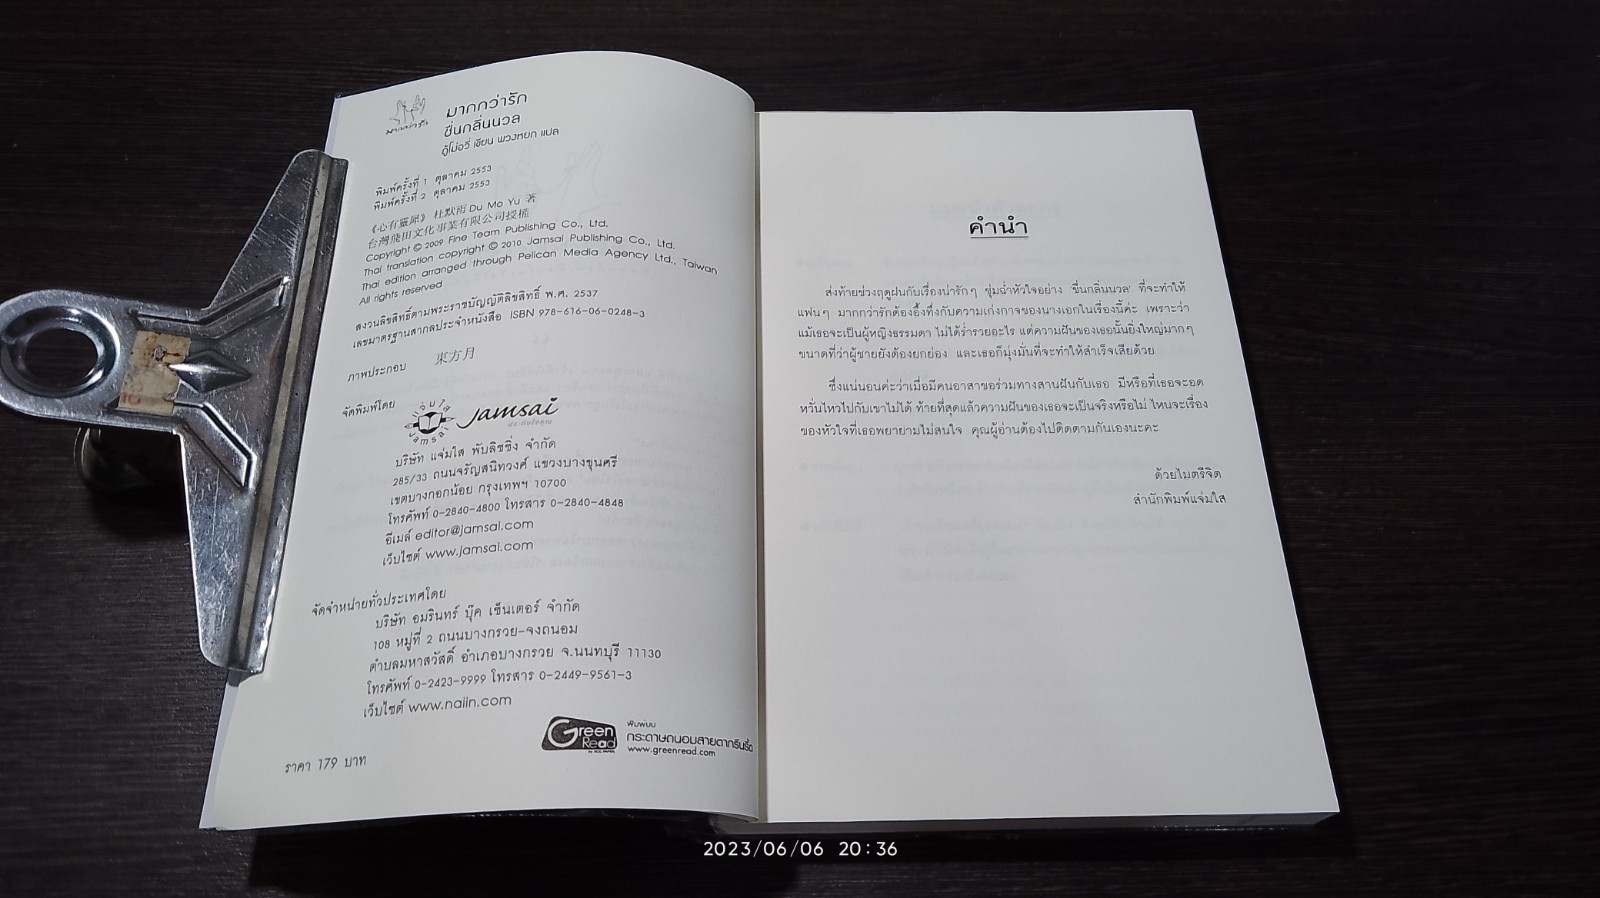 มากกว่ารัก
มากกว่ารัก
ชื่นกลิ่นนวล
ตู้โม่อวี่ เขียน พวงหยก แปล
พิมพ์ครั้งที่ 1 ตุลาคม 2553
พิมพ์ครั้งที่ 2 ตุลาคม 2553
《心有靈犀》 杜默雨 Du Mo Yu 著
台灣飛田文化事業有限公司授權
Copyright © 2009 Fine Team Publishing Co., Ltd.
Thai translation copyright © 2010 Jamsai Publishing Co., Ltd.
Thai edition arranged through Pelican Media Agency Ltd., Taiwan
All rights reserved
สงวนลิขสิทธิ์ตามพระราชบัญญัติลิขสิทธิ์ พ.ศ. 2537
เลขมาตรฐานสากลประจำหนังสือ ISBN 978-616-06-0248-3
ภาพประกอบ 東方月
จัดพิมพ์โดย
แจ่มใส
Jamsai
Jamsai
บริษัท แจ่มใส พับลิชชิ่ง จำกัด
285/33 ถนนจรัญสนิทวงศ์ แขวงบางขุนศรี
เขตบางกอกน้อย กรุงเทพฯ 10700
โทรศัพท์ 0-2840-4800 โทรสาร 0-2840-4848
อีเมล์ editor@jamsai.com
เว็บไซต์ www.jamsai.com
จัดจำหน่ายทั่วประเทศโดย
บริษัท อมรินทร์ บุ๊ค เซ็นเตอร์ จำกัด
108 หมู่ที่ 2 ถนนบางกรวย-จงถนอม
ตำบลมหาสวัสดิ์ อำเภอบางกรวย จ.นนทบุรี 11130
โทรศัพท์ 0-2423-9999 โทรสาร 0-2449-9561-3
เว็บไซต์ www.naiin.com
Green
Read
พิมพ์บน
กระดาษถนอมสายตากรีนรี้ด
www.greenread.com
ราคา 179 บาท
คำนำ
ส่งท้ายช่วงฤดูฝนกับเรื่องน่ารักๆ ชุ่มฉ่ำหัวใจอย่าง 'ชื่นกลิ่นนวล' ที่จะทำให้
แฟนๆ มากกว่ารักต้องอึ้งทึ่งกับความเก่งกาจของนางเอกในเรื่องนี้ค่ะ เพราะว่า
แม้เธอจะเป็นผู้หญิงธรรมดา ไม่ได้ร่ำรวยอะไร แต่ความฝันของเธอนั้นยิ่งใหญ่มากๆ
ขนาดที่ว่าผู้ชายยังต้องยกย่อง และเธอก็มุ่งมั่นที่จะทำให้สำเร็จเสียด้วย
ซึ่งแน่นอนค่ะว่าเมื่อมีคนอาสาขอร่วมทางสานฝันกับเธอ มีหรือที่เธอจะอด
หวั่นไหวไปกับเขาไม่ได้ ท้ายที่สุดแล้วความฝันของเธอจะเป็นจริงหรือไม่ ไหนจะเรื่อง
ของหัวใจที่เธอพยายามไม่สนใจ คุณผู้อ่านต้องไปติดตามกันเองนะคะ
ด้วยไมตรีจิต
สำนักพิมพ์แจ่มใส
2023/06/06 20:36